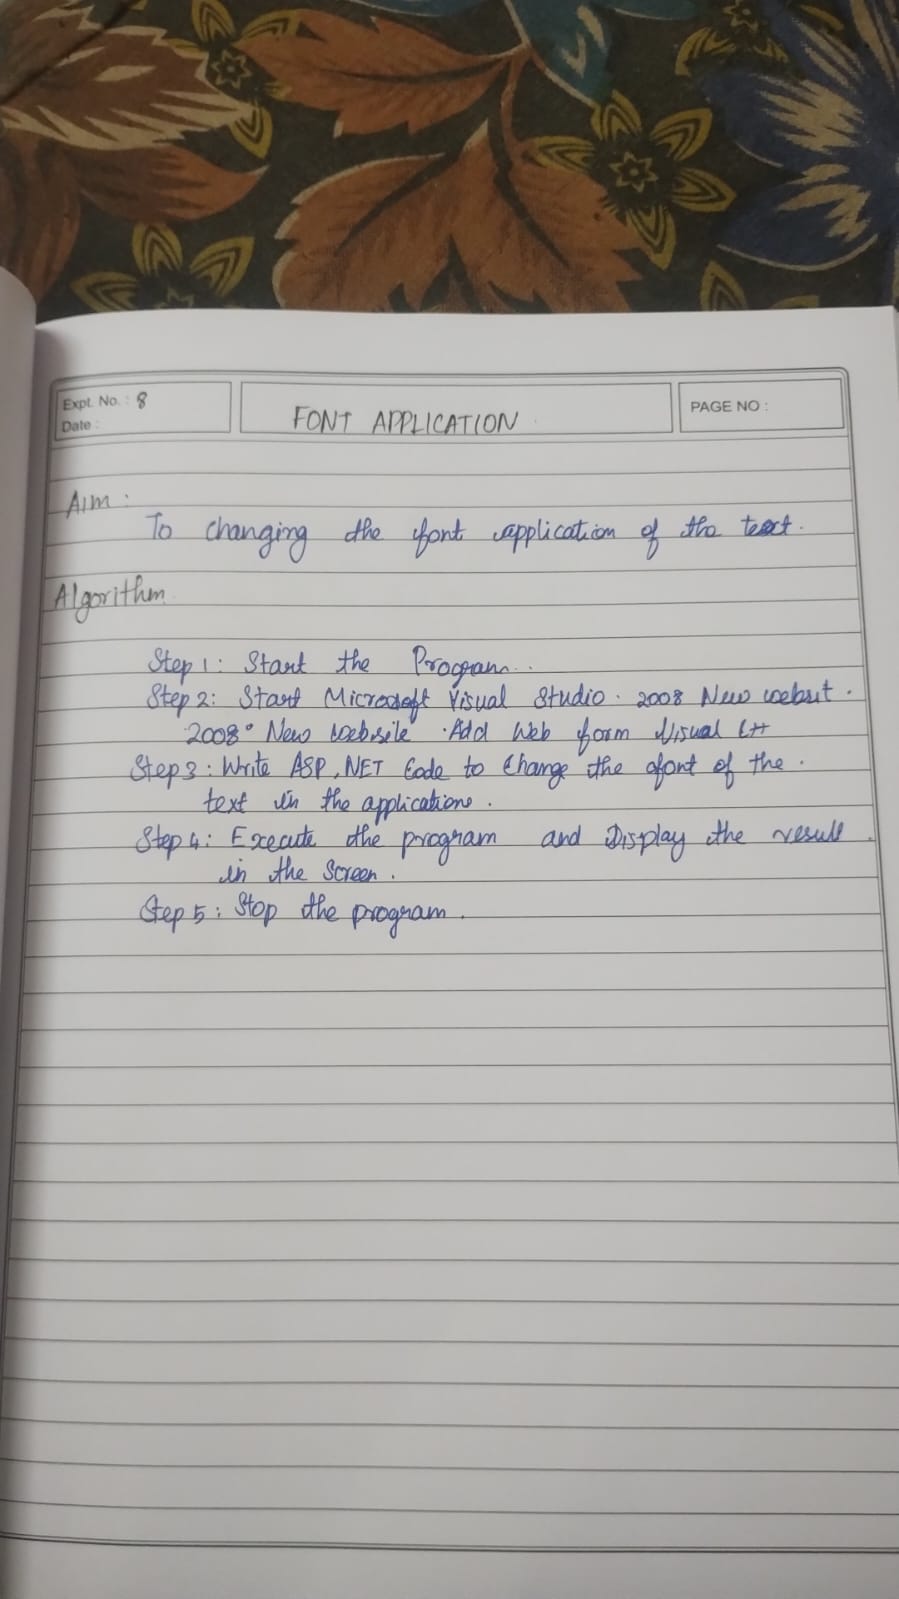 Expt. No. : 8
Date :
FONT APPLICATION
PAGE NO :
Aim :
To changing the font application of the text.
Algorithm
Step 1: Start the Program..
Step 2: Start Microsoft Visual Studio. 2008 New websit.
2008° New website .Add Web form Visual C++
Step 3: Write ASP.NET Code to Change the font of the.
text in the applications.
Step 4: Execute the program and Display the result.
in the Screen.
Step 5: Stop the program.